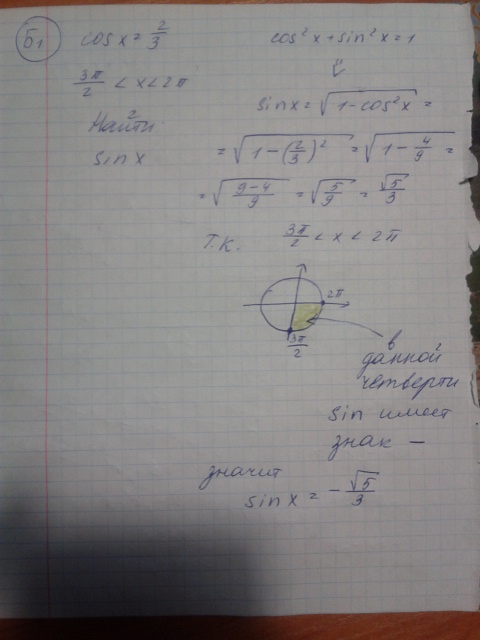 Б1
cos x = 2/3
3π/2 < x < 2π
Найти
sin x
cos²x + sin²x = 1
⇓
sin x = √(1 − cos²x) =
= √(1 − (2/3)²) = √(1 − 4/9) =
= √((9−4)/9) = √(5/9) = √5/3
Т.К. 3π/2 < x < 2π
2π
3π/2
в
данной
четверти
sin имеет
знак −
значит
sin x = − √5/3